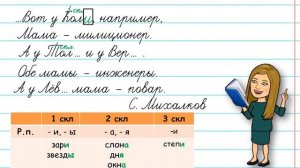 ...Вот у Коли, например,
Мама – милиционер.
А у Тол... и у Вер... .
Обе мамы – инженеры.
А у Лёв... мама – повар.
С. Михалков
1 скл 2 скл 3 скл
Р.п. - и, - ы - а, - я -и
зари слона степи
звезды дня
окна